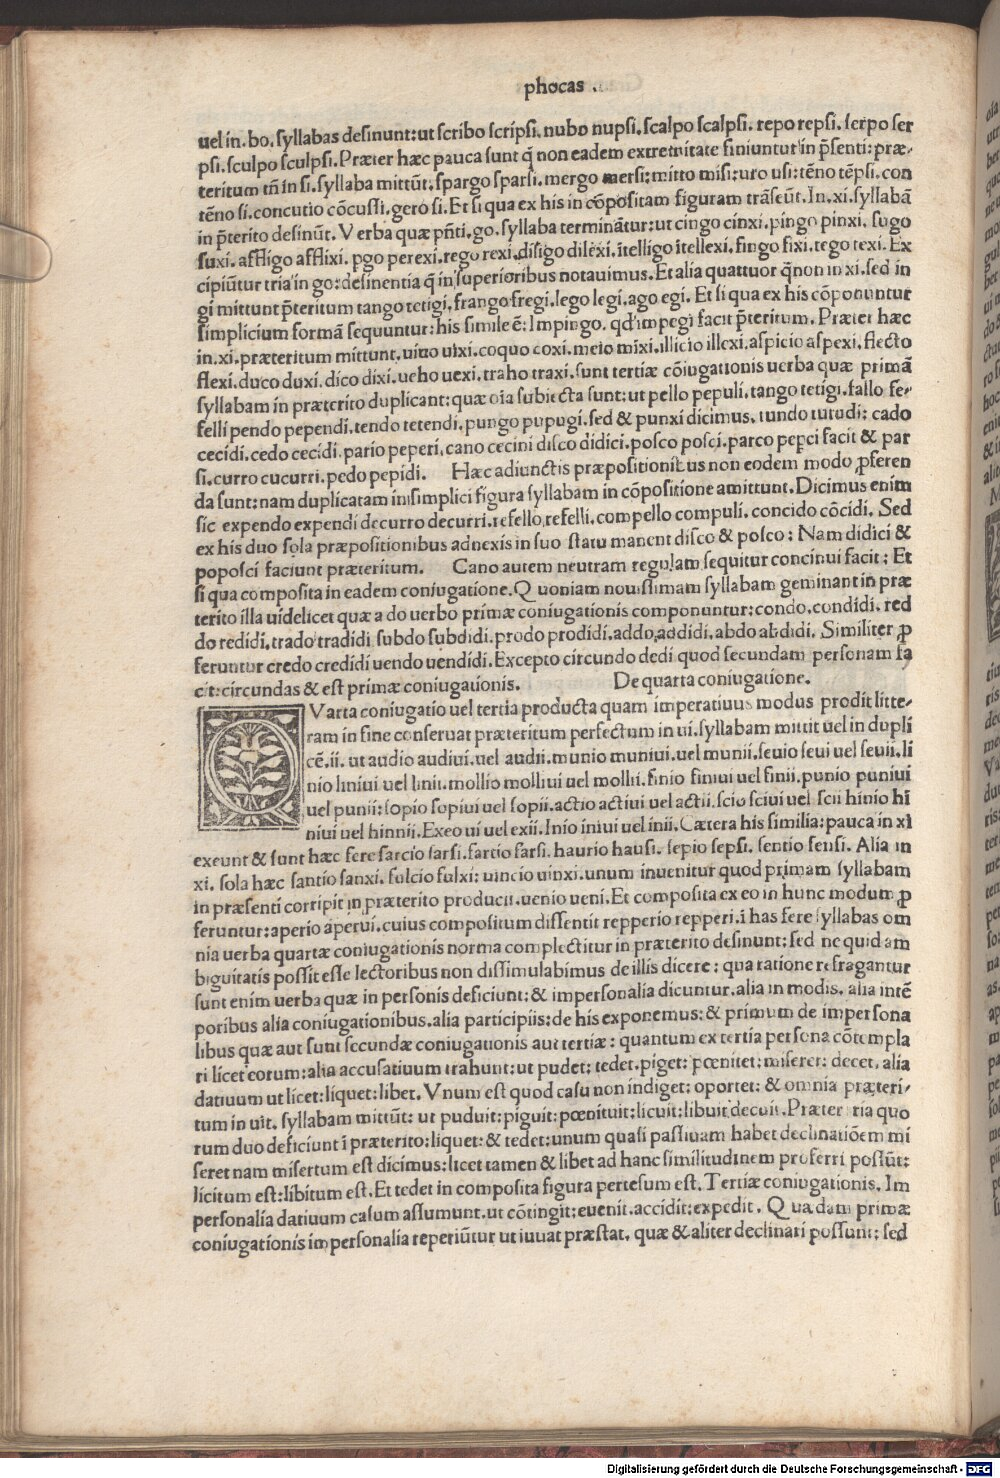 phocas .
uel in. bo. syllabas desinunt: ut scribo scripsi. nubo nupsi. scalpo scalpsi. repo repsi. serpo ser
psi. sculpo sculpsi. Præter hæc pauca sunt q̃ non eadem extremitate finiuntur in p̃senti: præ-
teritum tñ in si. syllaba mittũt. spargo sparsi. mergo mersi: mitto misi: uro usi: tẽno tẽpsi. con
tẽno si. concutio cõcussi. gero si. Et si qua ex his in cõpositam figuram trãseũt. In. xi. syllabã
in p̃terito desinũt. Verba quæ pñti. go. syllaba terminãtur: ut cingo cinxi. pingo pinxi. sugo
suxi. affligo afflixi. pgo perexi. rego rexi. diligo dilexi. ĩtelligo ĩtellexi. fingo fixi. tego texi. Ex
cipiũtur tria in go: desinentia q̃ in superioribus notauimus. Et alia quattuor q̃ non in xi. sed in
gi mittunt p̃teritum tango tetigi. frango fregi. lego legi. ago egi. Et si qua ex his cõponuntur
simplicium formã sequuntur: his simile ẽ: Impingo. qd impegi facit p̃teritum. Præter hæc
in. xi. præteritum mittunt. uiuo uixi. coquo coxi. meio mixi. illicio illexi. aspicio aspexi. flecto
flexi. duco duxi. dico dixi. ueho uexi. traho traxi. sunt tertiæ cõiugationis uerba quæ primã
syllabam in præterito duplicant: quæ oĩa subiecta sunt: ut pello pepuli. tango tetigi. fallo fe-
felli pendo pependi. tendo tetendi. pungo pupugi. sed & punxi dicimus. tundo tutudi: cado
cecidi. cedo cecidi. pario peperi. cano cecini disco didici. posco posci. parco peperci facit & par
si. curro cucurri. pedo pepidi. Hæc adiunctis præpositionibus non eodem modo ꝓferen
da sunt: nam duplicatam in simplici figura syllabam in cõpositione amittunt. Dicimus enim
sic expendo expendi decurro decurri. refello refelli. compello compuli. concido cõcidi. Sed
ex his duo sola præpositionibus adnexis in suo statu manent disco & posco: Nam didici &
poposci faciunt præteritum. Cano autem neutram regulam sequitur concinui facit: Et
si qua composita in eadem coniugatione. Quoniam nouissimam syllabam geminant in præ
terito illa uidelicet quæ a do uerbo primæ coniugationis componuntur: condo. condidi. red
do redidi. trado tradidi subdo subdidi. prodo prodidi. addo. addidi. abdo abdidi. Similiter ꝓ
feruntur credo credidi uendo uendidi. Excepto circundo dedi quod secundam personam fa
cit: circundas & est primæ coniugationis. De quarta coniugatione.
QVarta coniugatio uel tertia producta quam imperatiuus modus prodit litte-
ram in fine conseruat præteritum perfectum in ui. syllabam mittit uel in dupli
cẽ. ii. ut audio audiui. uel audii. munio muniui. uel munii. seuio seui uel seuii. li
nio liniui uel linii. mollio molliui uel mollii. finio finiui uel finii. punio puniui
uel punii: sopio sopiui uel sopii. actio actiui uel actii. scio sciui uel scii hinio hi
niui uel hinnii. Exeo ui uel exii. Inio iniui uel inii. Cætera his similia: pauca in xi
exeunt & sunt hæc fere sarcio sarsi. fartio farsi. haurio hausi. sepio sepsi. sentio sensi. Alia in
xi. sola hæc santio sanxi. fulcio fulxi: uincio uinxi. unum inuenitur quod primam syllabam
in præsenti corripit in præterito producit. uenio ueni. Et composita ex eo in hunc modum ꝓ
feruntur: aperio aperui. cuius compositum dissentit repperio repperi. ĩ has fere syllabas om
nia uerba quartæ coniugationis norma complectitur in præterito desinunt: sed ne quid am
biguitatis possit esse lectoribus non dissimulabimus de illis dicere: qua ratione refragantur
sunt enim uerba quæ in personis deficiunt: & impersonalia dicuntur. alia in modis. alia intẽ
poribus alia coniugationibus. alia participiis: de his exponemus: & primum de impersona
libus quæ aut sunt secundæ coniugationis aut tertiæ: quantum ex tertia persona cõtempla
ri licet eorum: alia accusatiuum trahunt: ut pudet: tedet. piget: pœnitet: miseret: decet. alia
datiuum ut licet: liquet: libet. Vnum est quod casu non indiget: oportet: & omnia præteri-
tum in uit. syllabam mittũt: ut puduit: piguit: pœnituit: licuit: libuit decuit. Præter tria quo
rum duo deficiunt ĩ præterito: liquet: & tedet: unum quasi passiuam habet declinatiõem mi
seret nam misertum est dicimus: licet tamen & libet ad hanc similitudinem proferri possũt:
licitum est: libitum est. Et tedet in composita figura pertesum est. Tertiæ coniugationis. Im
personalia datiuum casum assumunt. ut cõtingit: euenit. accidit: expedit. Quædam primæ
coniugationis impersonalia reperiũtur ut iuuat præstat. quæ & aliter declinari possunt: sed
Digitalisierung gefördert durch die Deutsche Forschungsgemeinschaft - DFG